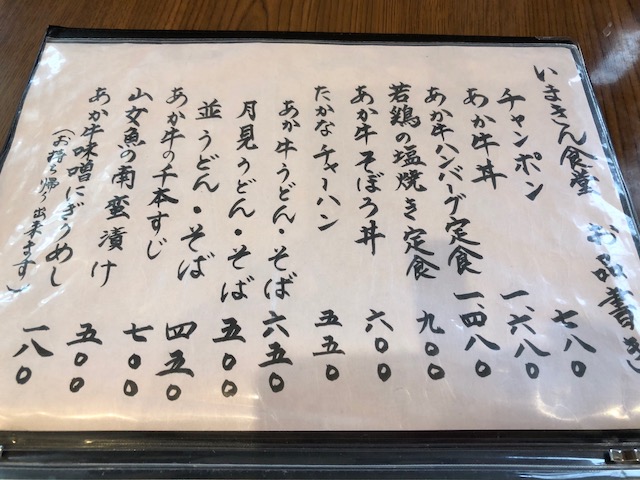 いまきん食堂 お品書き
チャンポン 七八〇
あか牛丼 一、六八〇
あか牛ハンバーグ定食 一、四八〇
若鶏の塩焼き定食 九〇〇
あか牛そぼろ丼 六〇〇
たかなチャーハン 五五〇
あか牛うどん・そば 六五〇
月見うどん・そば 五〇〇
並うどん・そば 四五〇
あか牛の千本すじ 七〇〇
山女魚の南蛮漬け 五〇〇
あか牛味噌にぎりめし 一八〇
(お持ち帰り出来ます)